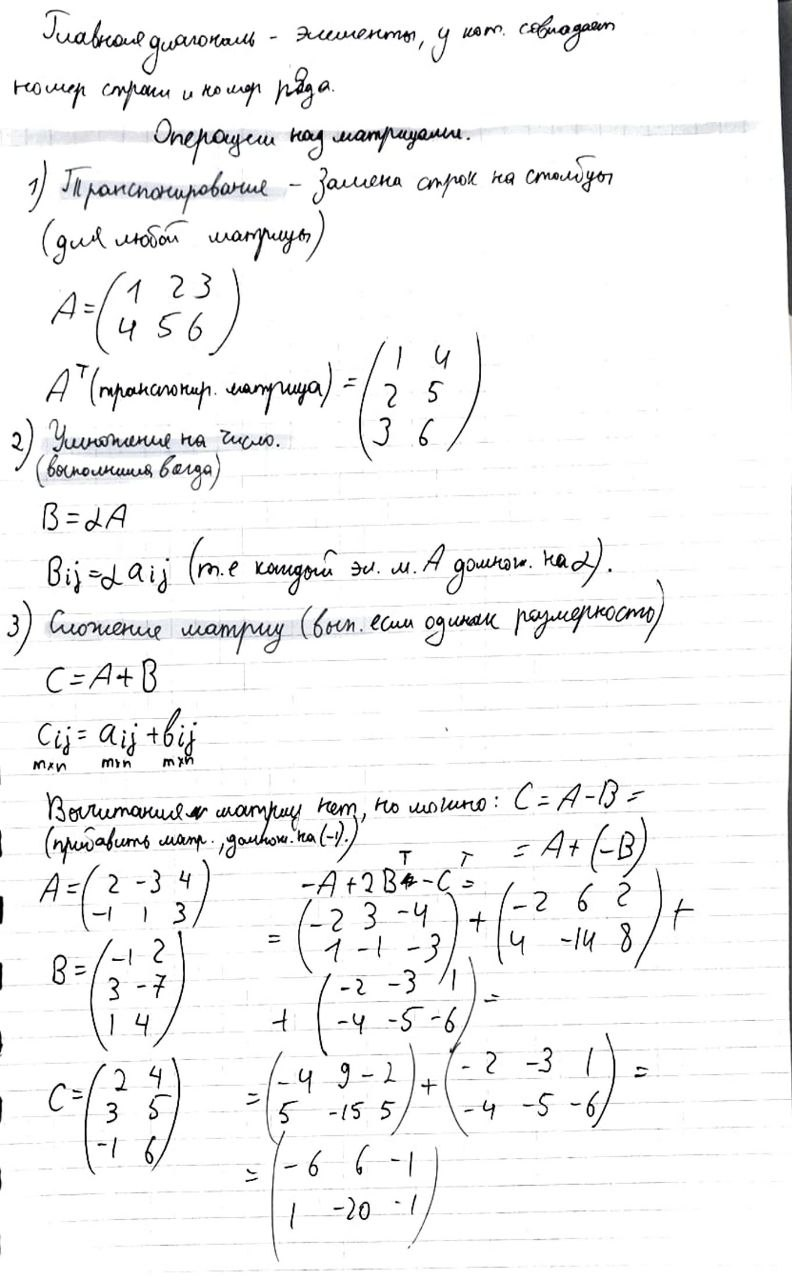 Главная диагональ - элементы, у кот. совпадает
номер строки и номер ряда.
Операции над матрицами.
1) Транспонирование - Замена строк на столбцы
(для любой матрицы)
A = (1 2 3
4 5 6)
Aᵀ (транспонир. матрица) = (1 4
2 5
3 6)
2) Умножение на число.
(выполнима всегда)
B = αA
Bij = α aij (т.е каждый эл. м. A домнож. на α).
3) Сложение матриц (вып. если одинак размерность)
C = A + B
Cij = aij + bij
m×n m×n m×n
Вычитания матриц нет, но можно: C = A - B =
(прибавить матр., домнож. на (-1).) = A + (-B)
A = (2 -3 4
-1 1 3)
B = (-1 2
3 -7
1 4)
C = (2 4
3 5
-1 6)
-A + 2Bᵀ - Cᵀ =
= (-2 3 -4
1 -1 -3) + (-2 6 2
4 -14 8) +
+ (-2 -3 1
-4 -5 -6) =
= (-4 9 -2
5 -15 5) + (-2 -3 1
-4 -5 -6) =
= (-6 6 -1
1 -20 -1)